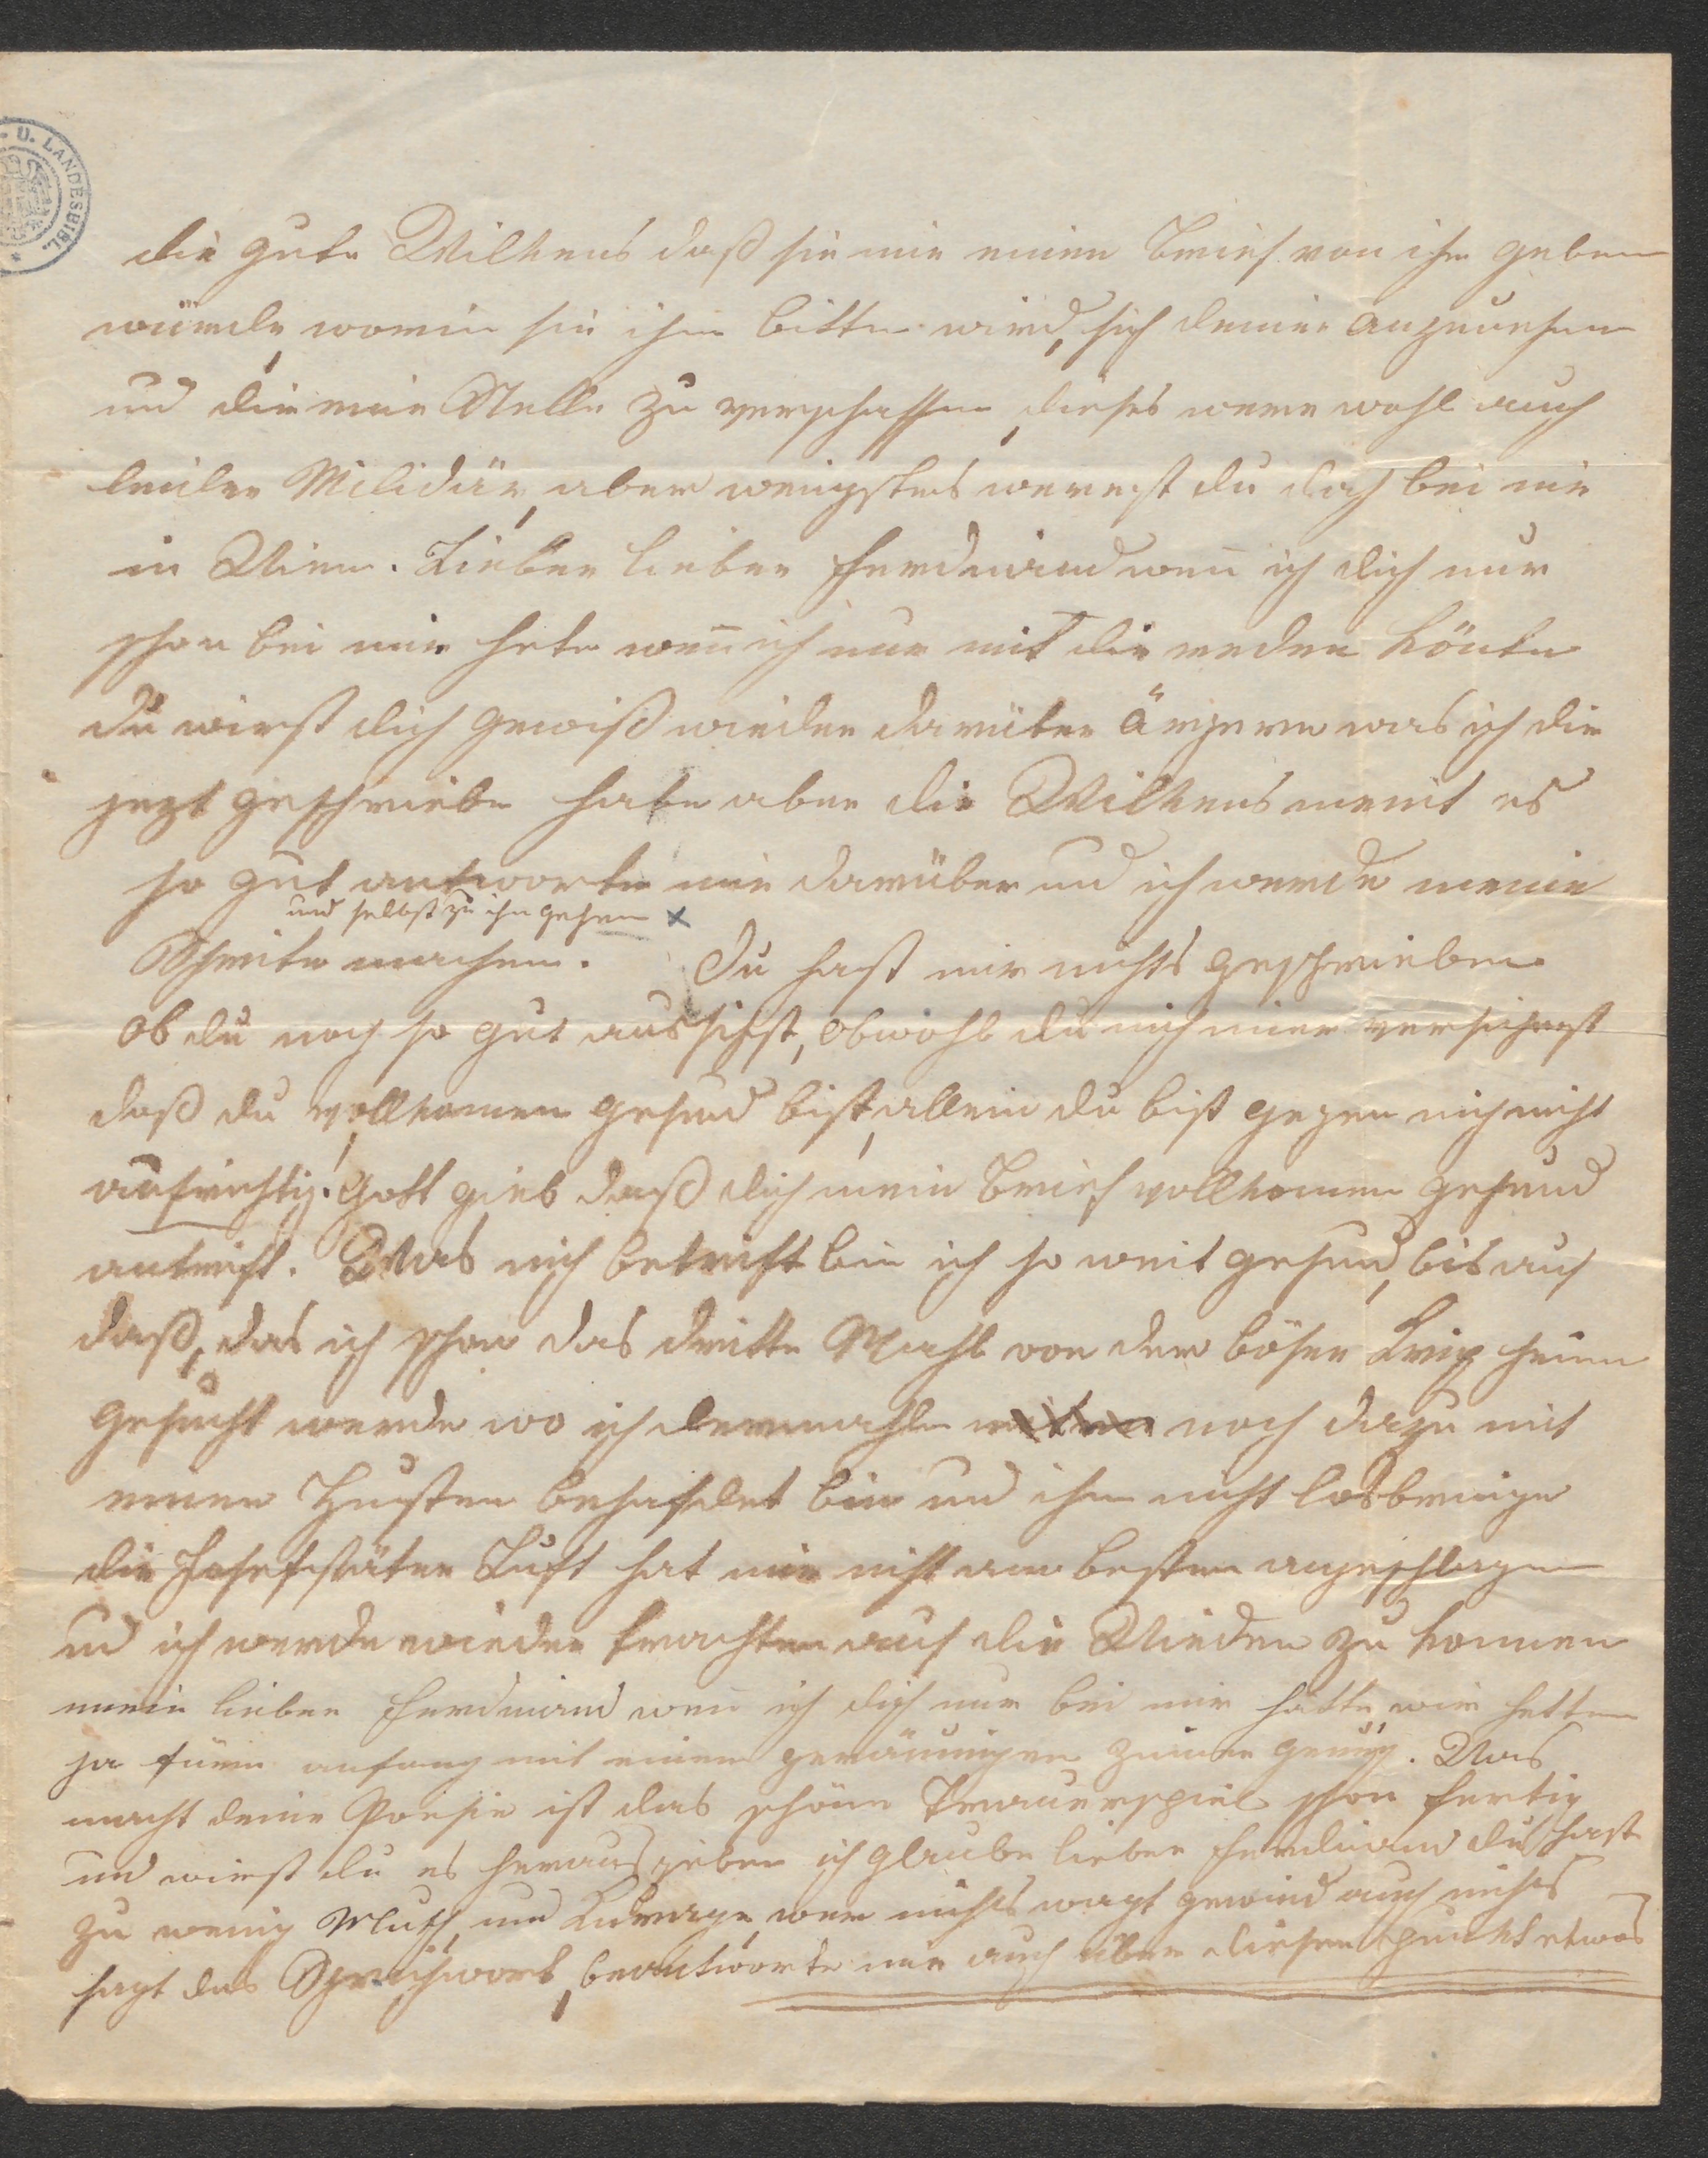 U. LANDESBIBL.
die gute Wilkens daß sie mir einen Brief von ihr geben
würde, worin sie ihm bitten wird, sich deiner anzunehmen
und dir eine Stelle zu verschaffen, dieses were wohl auch
beiden Milidär, aber wenigstens werest du doch bei mir
in Wien. Lieber lieber Ferdinand wen̄ ich dich nur
schon bei mir hete wen̄ ich nur mit dir reden könte
du wirst dich gewiß wieder darüber ärgern was ich dir
jezt geschrieben habe aber die Wilkens meint es
so gut antworte mir darüber und ich werde meine
und selbst zu ihr gehen x
Schritte machen. Du hast mir nichts geschrieben
ob du noch so gut aussihst, obwohl du mich imer versicherst
daß du vollkomen gesund bist, allein du bist gegen mich nicht
aufrichtig. Gott gieb daß dich mein Brief vollkomen gesund
antrift. Was mich betrieft bin ich so weit gesund, bis auf
daß, das ich schon das dritte Mahl von der bösen Grip heim
gesucht werde wo ich dermahlen noch dazu mit
einen Husten behafdet bin und ihm nicht losbringe
die Josefstäter Luft hat mir nicht am besten angeschlagen
und ich werde wieder trachten auf die Wieden zu kommen
mein lieber Ferdinand wen̄ ich dich nur bei mir hätte, wir hetten
ja fürn anfang mit einen geräumigen Zimer genug. Was
macht deine Poesie ist das schöne Trauerspiel schon fertig
und wirst du es herausgeben ich glaube lieber Ferdinand du hast
zu wenig Muth, und Kurage, wer nichts wagt gewind auch nichts
sagt das Sprichwort, beantworte mir auch über diesen Punkt etwas